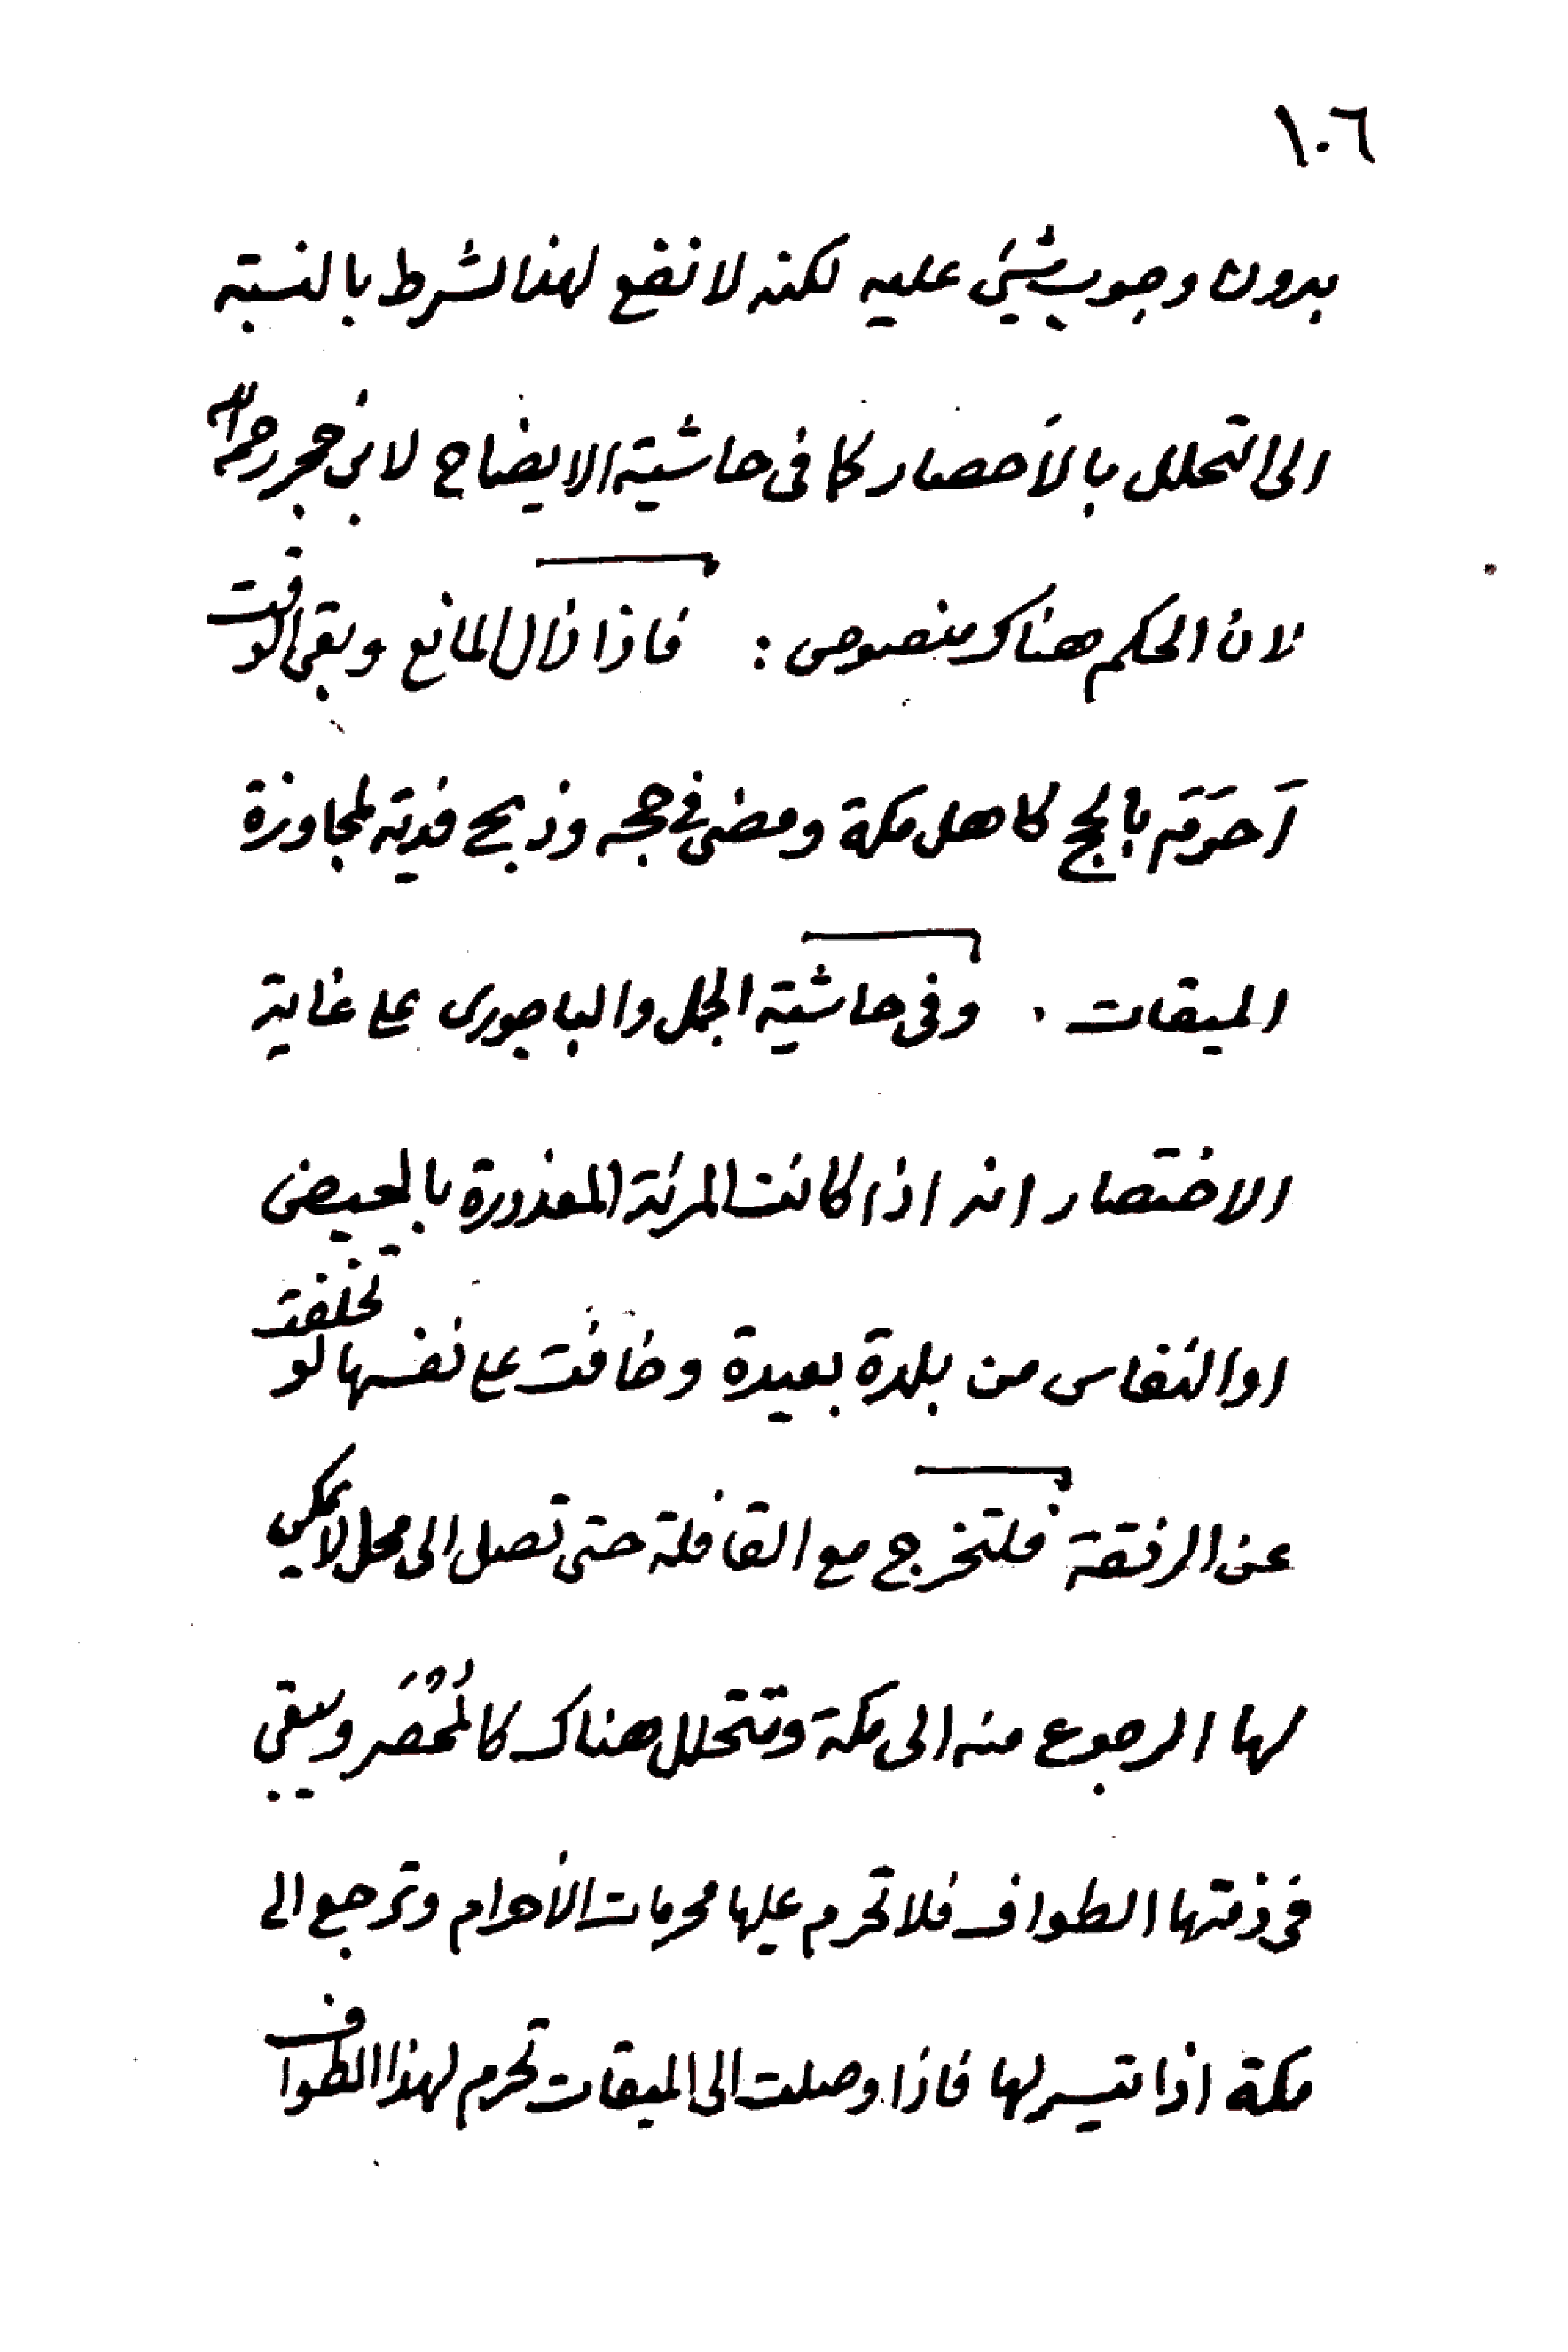 ١٠٦
بدون وجوب شيئ عليه لكنه لا نفع لهذا الشرط بالنسبة
الى التحلل بالأحصار كما فى حاشية الايضاح لابن حجر رحمه الله
لان الحكم هناك منصوص : فاذا زال المانع وبقى الوقت
أَحرَمَ بالحج كاهل مكة ومضى فى حجه وذبح فدية لمجاوزة
الميقات . وفى حاشية الجمل والباجورى على غاية
الاختصار انه اذا كانت المرئة المعذورة بالحيض
او النفاس من بلدة بعيدة وخافت على نفسها لو تخلفت
عن الرفقة فلتخرج مع القافلة حتى تصل الى محل لا يمكن
لها الرجوع منه الى مكة وتتحلل هناك كالمُحْصَر ويبقى
فى ذمتها الطواف فلا تحرم عليها محرمات الأحرام وترجع الى
مكة اذا تيسر لها فاذا وصلت الى الميقات تحرم لهذا الطواف